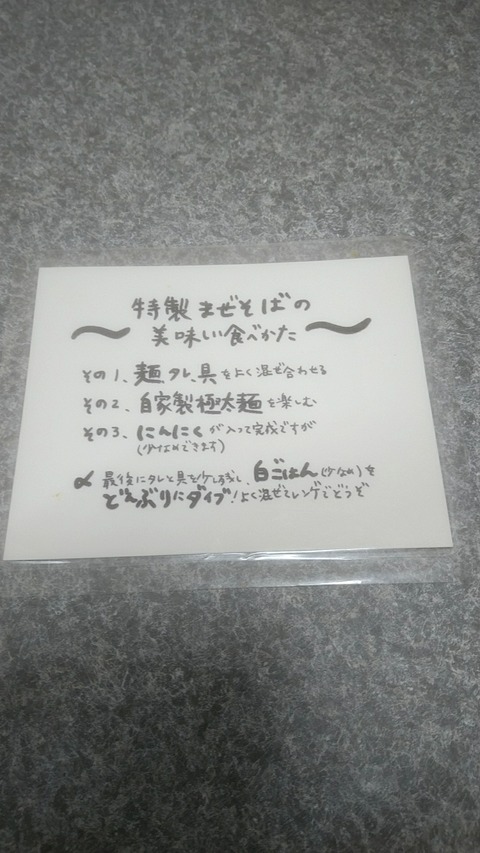 特製まぜそばの
〜美味い食べかた〜
その1、麺、タレ、具をよく混ぜ合わせる
その2、自家製極太麺を楽しむ
その3、にんにくが入って完成ですが
(少なめできます)
〆 最後にタレと具を少し残し、白ごはん(少なめ)を
どんぶりにダイブ!よく混ぜてレンゲでどうぞ